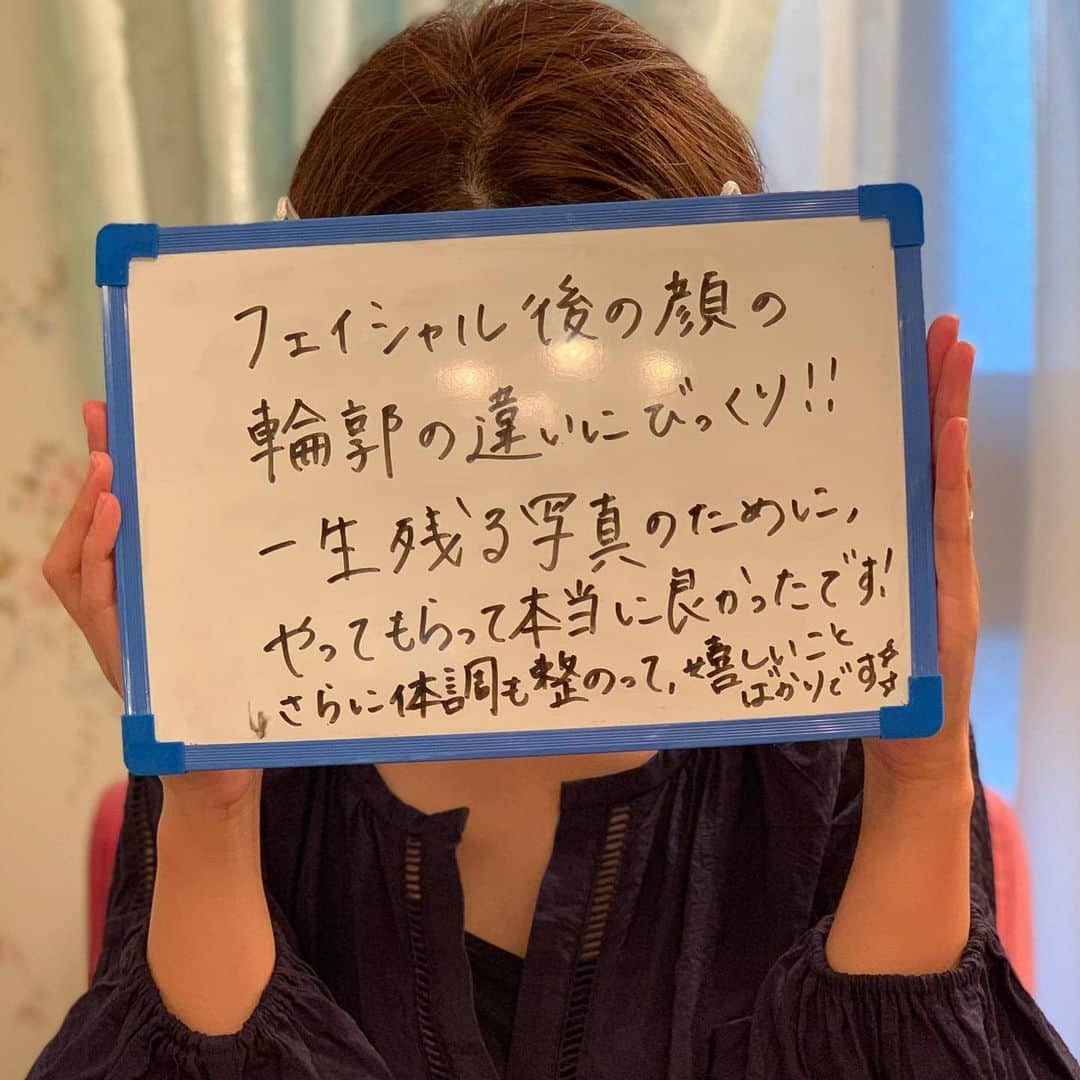 フェイシャル後の顔の
輪郭の違いにびっくり!!
一生残る写真のために、
やってもらって本当に良かったです!
さらに体調も整のって、嬉しいこと
ばかりです